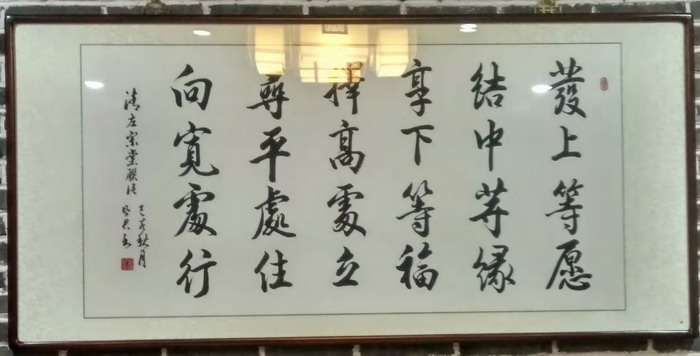 發上等愿
結中等缘
享下等福
擇高處立
尋平處住
向寬處行
清左宗棠聯语
己亥秋月